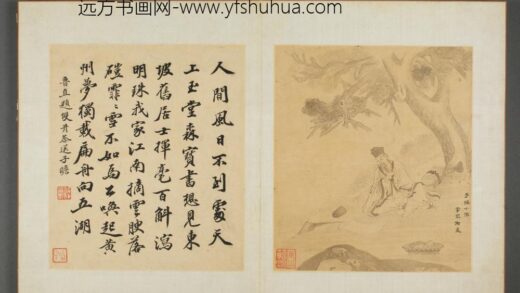 远方书画网-www.yfshuhua.com
人間風日不到處天
上玉堂森寶書想見東
坡舊居士揮毫百斛瀉
明珠我家江南摘雲腴落
磑霏〻雪不如為公喚起黃
州夢獨載扁舟向五湖
魯直題雙井茶送子瞻